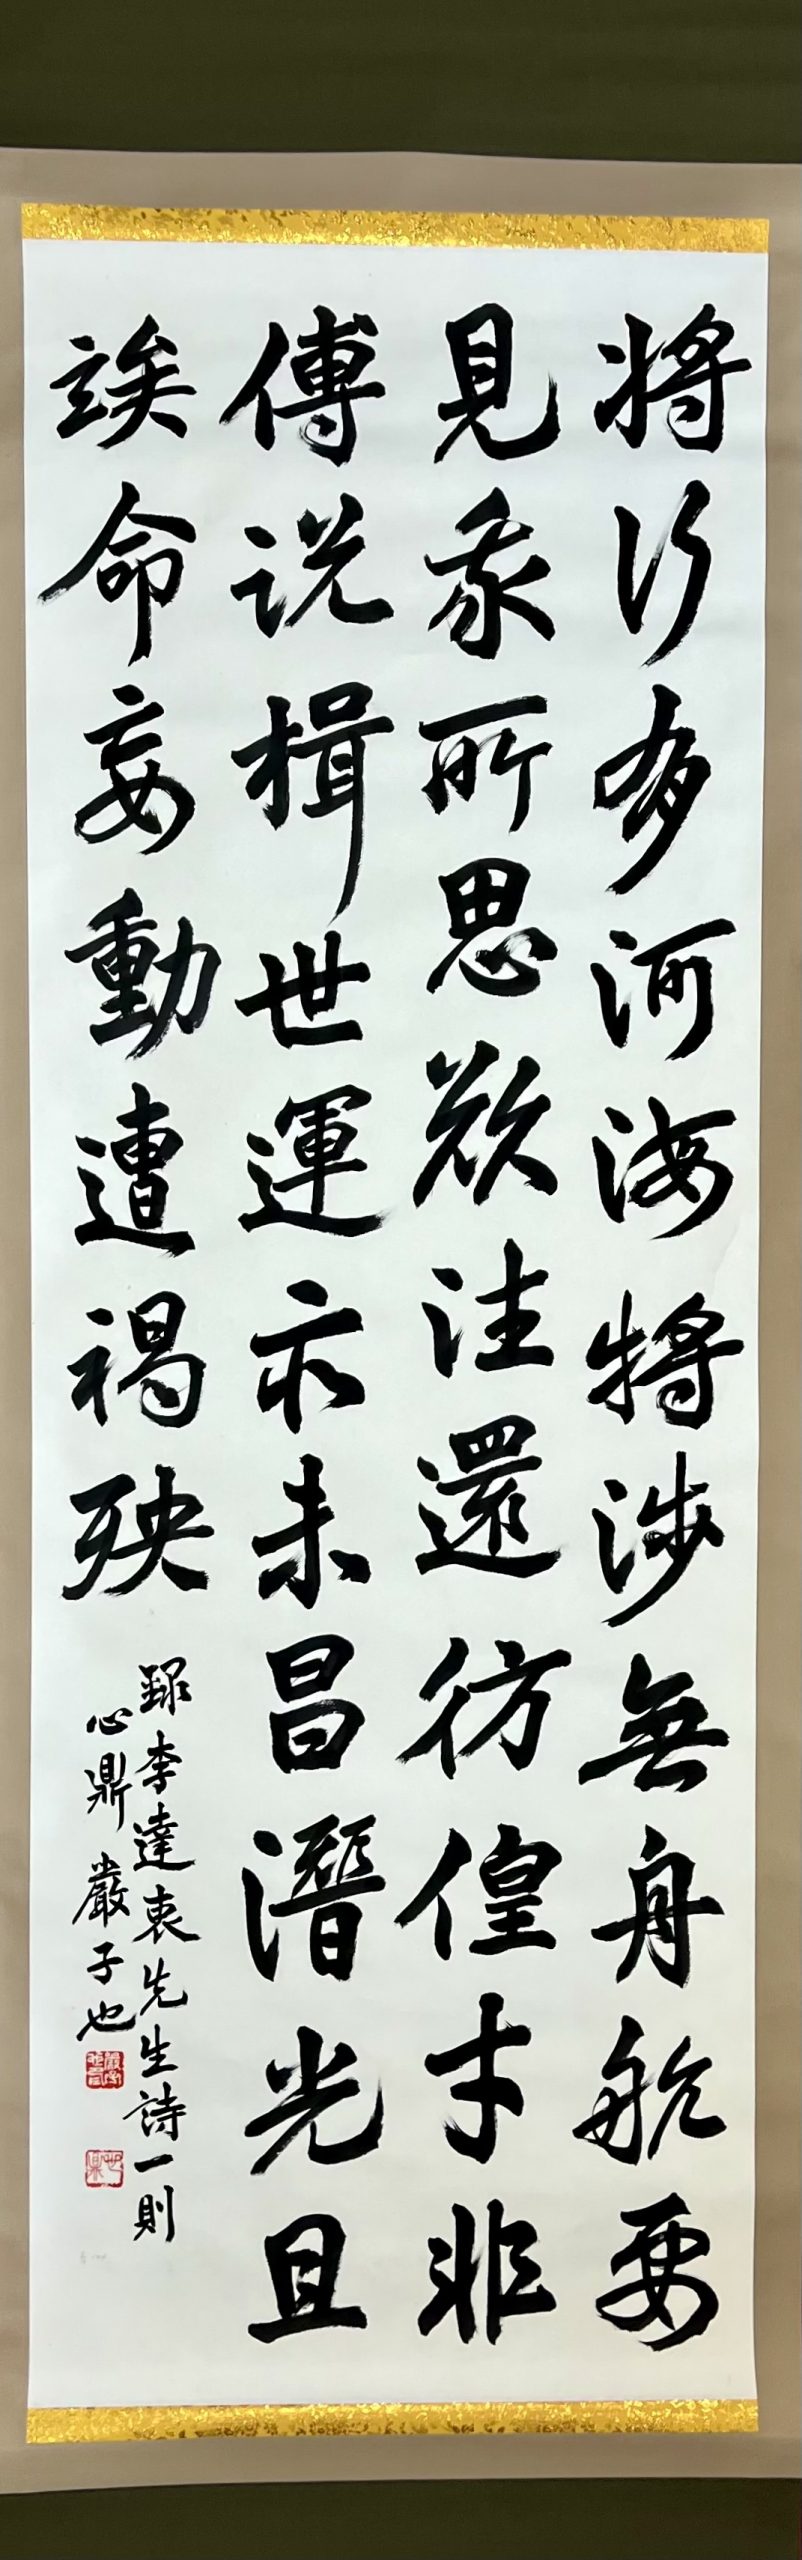 將行多河海將涉無舟航要
見我所思欲往還彷徨才非
傅说楫世運亦未昌潛光且
竢命妄動遭禍殃
録李達衷先生詩一則
心鼎 嚴子也